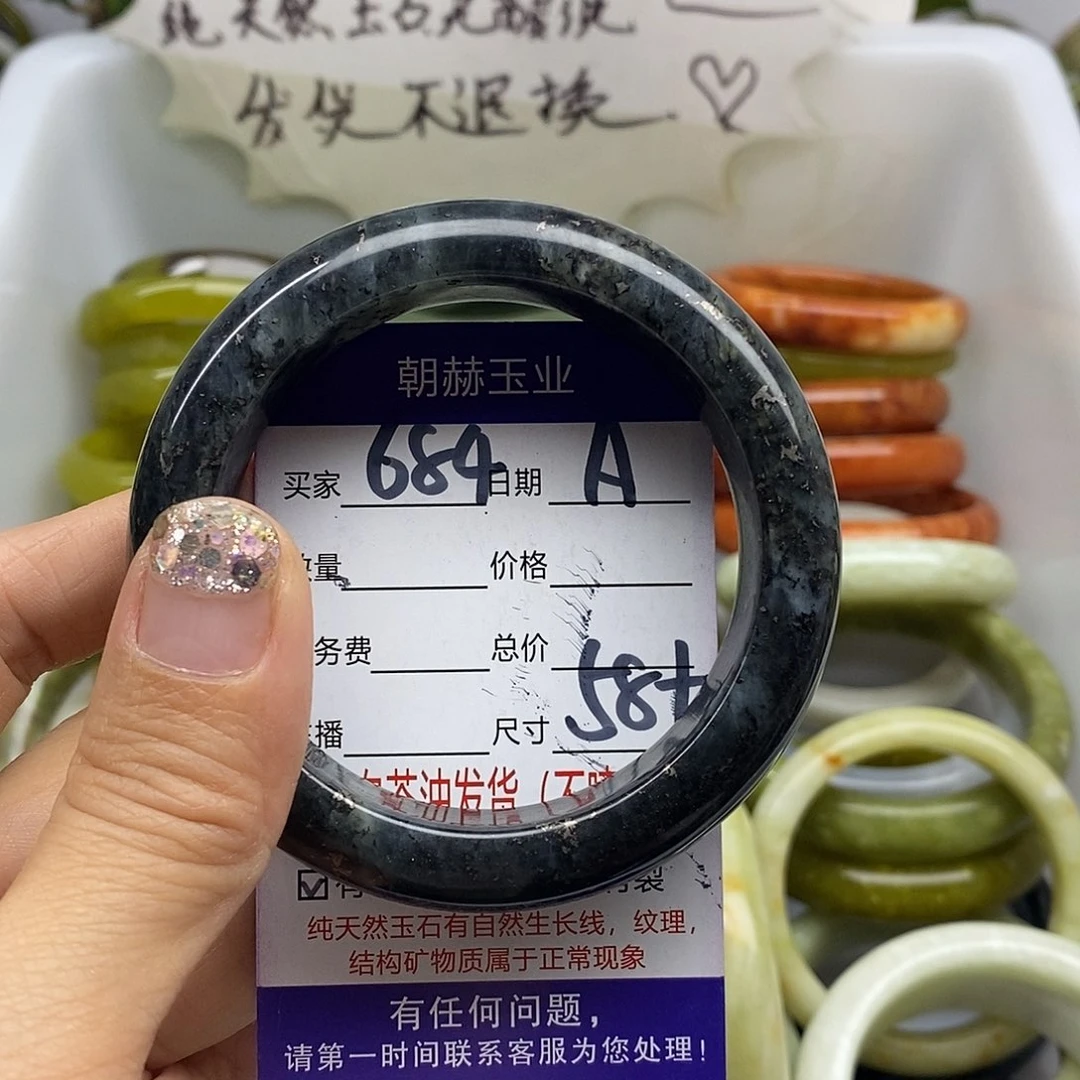 纯天然玉石无酸洗
发货不退换.
朝赫玉业
买家 684 日期 A
量 价格
务费 总价
播 尺寸 58+
茶油发货 (不
☑ 有 裂
纯天然玉石有自然生长线，纹理，
结构矿物质属于正常现象
有任何问题，
请第一时间联系客服为您处理！